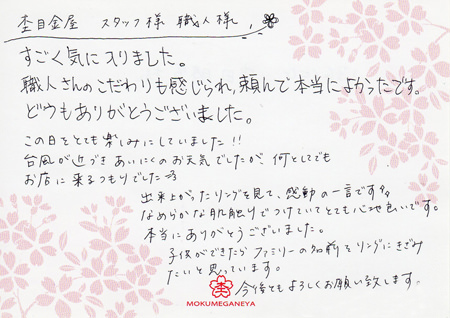 杢目金屋 スタッフ様 職人様
すごく気に入りました。
職人さんのこだわりも感じられ、頼んで本当によかったです。
どうもありがとうございました。
この日をとても楽しみにしていました!!
台風が近づきあいにくのお天気でしたが、何としてでも
お店に来るつもりでした
出来上がったリングを見て、感動の一言です
なめらかな肌触りでつけていてとても心地良いです。
本当にありがとうございました。
子供ができたらファミリーの名前をリングにきざみ
たいと思っています。
今後ともよろしくお願い致します。
MOKUMEGANEYA